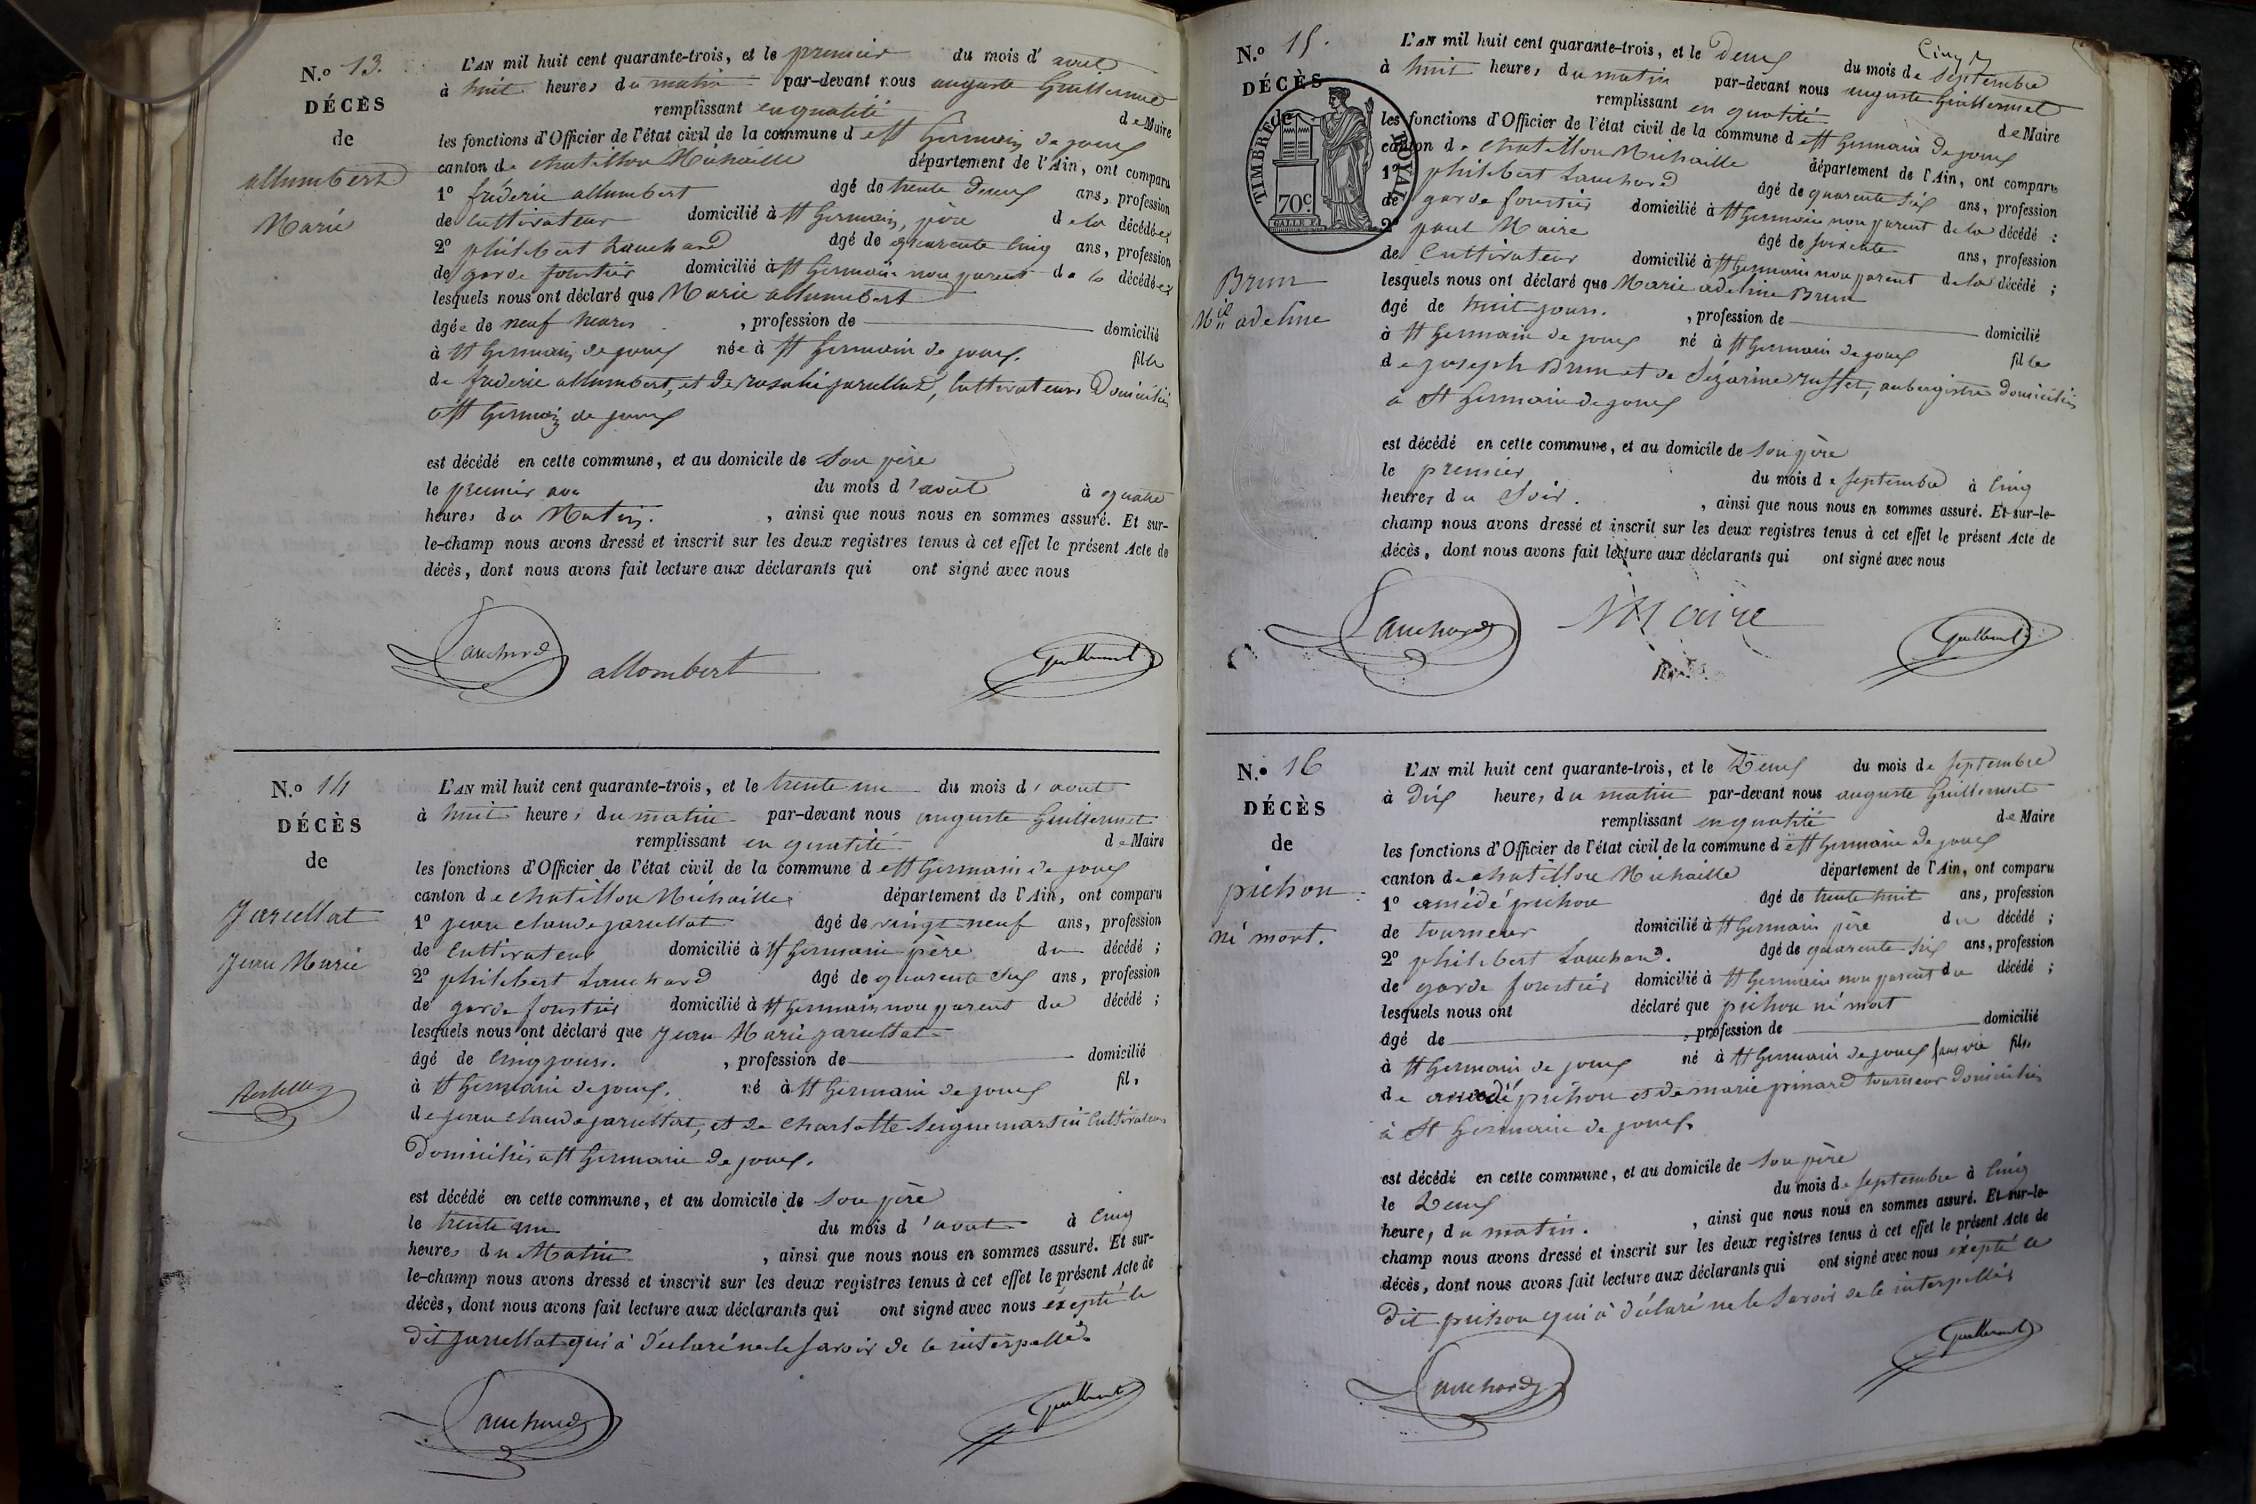 N.o 13.
DÉCÈS
de
allumbert
Marie
L'AN mil huit cent quarante-trois, et le premier du mois d' aout
à huit heures du matin par-devant nous auguste Guillermet
remplissant en qualité de Maire
les fonctions d'Officier de l'état civil de la commune de St Germain de joux
canton de chatillon Michaille département de l'Ain, ont comparu
1o fréderic allumbert âgé de trente deux ans, profession
de cultivateur domicilié à St Germain, père de la décédée;
2o philibert Lauchard âgé de quarante cinq ans, profession
de garde forestier domicilié à St Germain non parent de la décédée;
lesquels nous ont déclaré que Marie allumbert
âgée de neuf heures , profession de domicilié
à St Germain de joux née à St Germain de joux. fille
de fréderic allumbert, et de rosalie jarullaz, cultivateurs Domiciliés
a St Germain de joux
est décédé en cette commune, et au domicile de Son père
le premier du mois d'aout à quatre
heures du Matin. , ainsi que nous nous en sommes assuré. Et sur-
le-champ nous avons dressé et inscrit sur les deux registres tenus à cet effet le présent Acte de
décès, dont nous avons fait lecture aux déclarants qui ont signé avec nous
Lauchard allombert Guillermet
N.o 14
DÉCÈS
de
Jarullat
Jean Marie
L'AN mil huit cent quarante-trois, et le trente un du mois d'aout
à huit heures du matin par-devant nous auguste Guillermet
remplissant en qualité de Maire
les fonctions d'Officier de l'état civil de la commune de St Germain de joux
canton de chatillon Michaille département de l'Ain, ont comparu
1o jean claude jarullat âgé de vingt neuf ans, profession
de Cultivateur domicilié à St Germain père du décédé;
2o philibert Lauchard âgé de quarante six ans, profession
de garde forestier domicilié à St Germain non parent du décédé;
lesquels nous ont déclaré que jean Marie jarullat
âgé de cinq jours. , profession de domicilié
à St Germain de joux. né à St Germain de joux fils
de jean claude jarullat, et de Charlotte Seignemartin Cultivateurs
Domiciliés a St Germain de joux.
est décédé en cette commune, et au domicile de Son père
le trente un du mois d'aout à cinq
heures du Matin , ainsi que nous nous en sommes assuré. Et sur-
le-champ nous avons dressé et inscrit sur les deux registres tenus à cet effet le présent Acte de
décès, dont nous avons fait lecture aux déclarants qui ont signé avec nous exepté le
dit jarullat qui à déclaré ne le savoir de ce interpellé.
Lauchard Guillermet
N.o 15.
DÉCÈS
de
TIMBRE ROYAL
70c.
Brun
Mie adeline
L'AN mil huit cent quarante-trois, et le Deux du mois de Septembre
à huit heures du matin par-devant nous auguste Guillermet
remplissant en qualité de Maire
les fonctions d'Officier de l'état civil de la commune de St Germain de joux
canton de chatillon Michaille département de l'Ain, ont comparu
1o philibert Lauchard âgé de quarante six ans, profession
de garde forestier domicilié à St Germain non parent de la décédé;
2o paul Maire âgé de soixante ans, profession
de Cultivateur domicilié à St Germain non parent de la décédé;
lesquels nous ont déclaré que Marie adeline Brun
âgé de huit jours. , profession de domicilié
à St Germain de joux né à St Germain de joux fille
de joseph Brun et de Sézarine ruffet, aubergistes domiciliés
à St Germain de joux
est décédé en cette commune, et au domicile de Son père
le premier du mois de Septembre à cinq
heures du Soir. , ainsi que nous nous en sommes assuré. Et sur-le-
champ nous avons dressé et inscrit sur les deux registres tenus à cet effet le présent Acte de
décès, dont nous avons fait lecture aux déclarants qui ont signé avec nous
Lauchard Maire Guillermet
N.o 16
DÉCÈS
de
pichon
né mort.
L'AN mil huit cent quarante-trois, et le Deux du mois de Septembre
à Dix heures du matin par-devant nous auguste Guillermet
remplissant en qualité de Maire
les fonctions d'Officier de l'état civil de la commune de St Germain de joux
canton de chatillon Michaille département de l'Ain, ont comparu
1o amédé pichon âgé de trente huit ans, profession
de tourneur domicilié à St Germain père du décédé;
2o philibert Lauchard. âgé de quarante six ans, profession
de garde forestier domicilié à St Germain non parent du décédé;
lesquels nous ont déclaré que pichon né mort
âgé de , profession de domicilié
à St Germain de joux né à St Germain de joux sans vie fils
de amédé pichon et de marie pinard tourneur domiciliés
à St Germain de joux.
est décédé en cette commune, et au domicile de Son père
le Deux du mois de Septembre à cinq
heures du matin. , ainsi que nous nous en sommes assuré. Et sur-le-
champ nous avons dressé et inscrit sur les deux registres tenus à cet effet le présent Acte de
décès, dont nous avons fait lecture aux déclarants qui ont signé avec nous exepté le
Dit pichon qui à déclaré ne le Savoir de ce interpellés
Lauchard Guillermet